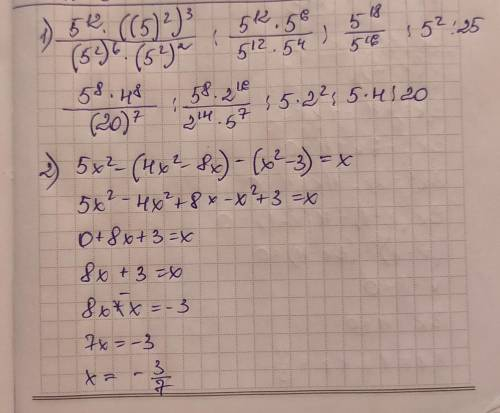 1) 5¹² · ((5)²)³ / (5²)⁶ · (5²)² ; 5¹² · 5⁶ / 5¹² · 5⁴ ; 5¹⁸ / 5¹⁶ ; 5² ; 25
5⁸ · 4⁸ / (20)⁷ ; 5⁸ · 2¹⁶ / 2¹⁴ · 5⁷ ; 5 · 2² ; 5 · 4 ; 20
2) 5x² - (4x² - 8x) - (x² - 3) = x
5x² - 4x² + 8x - x² + 3 = x
0 + 8x + 3 = x
8x + 3 = x
8x - x = -3
7x = -3
x = - 3/7